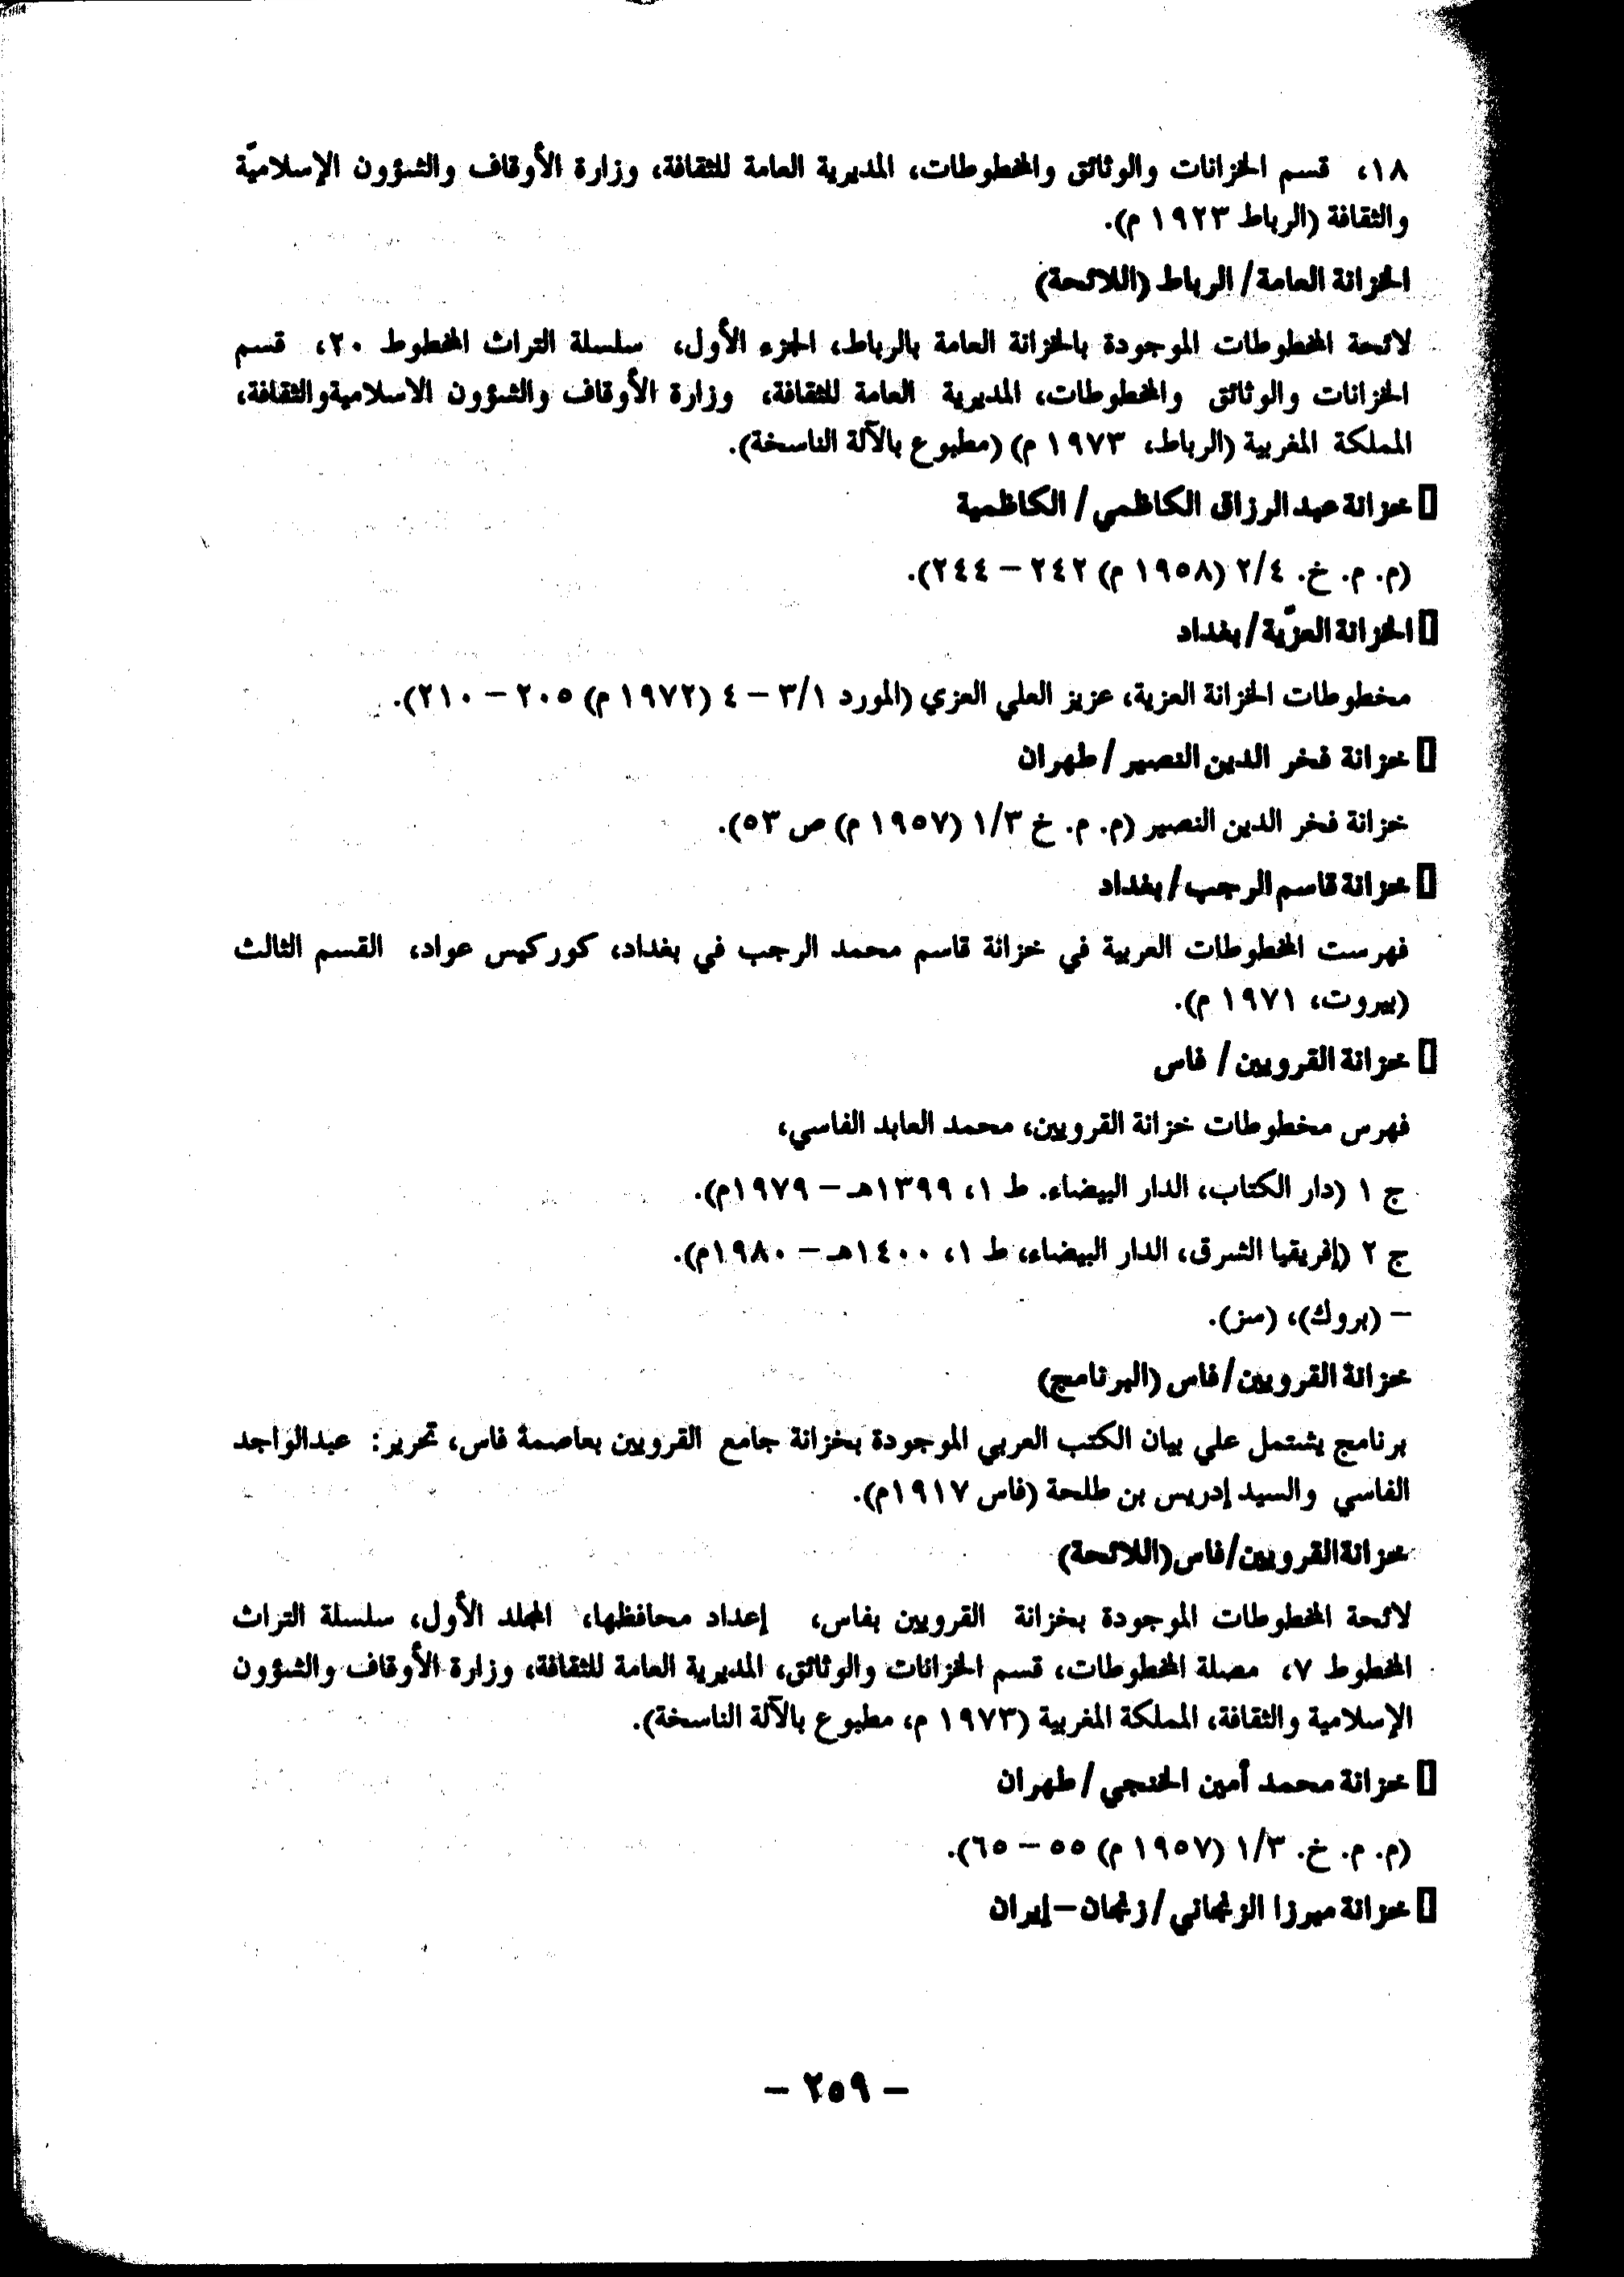 ١٨، قسم الخزانات والوثائق والمخطوطات، المديرية العامة للثقافة، وزارة الأوقاف والشؤون الإسلاميّة
والثقافة (الرباط ١٩٢٣ م).
الخزانة العامة/ الرباط (اللائحة)
لائحة المخطوطات الموجودة بالخزانة العامة بالرباط، الجزء الأول، سلسلة التراث المخطوط ٢٠، قسم
الخزانات والوثائق والمخطوطات، المديرية العامة للثقافة، وزارة الأوقاف والشؤون الاسلاميةوالثقافة،
المملكة المغربية (الرباط، ١٩٧٣ م) (مطبوع بالآلة الناسخة).
▯ خزانة عبد الرزاق الكاظمي / الكاظمية
(م. م. خ. ٢/٤ (١٩٥٨ م) ٢٤٢ – ٢٤٤).
▯ الخزانة العزّية/ بغداد
مخطوطات الخزانة العزية، عزيز العلي العزي (المورد ٣/١ – ٤ (١٩٧٢ م) ٢٠٥ – ٢١٠).
▯ خزانة فخر الدين النصير / طهران
خزانة فخر الدين النصير (م. م. خ ١/٣ (١٩٥٧ م) ص ٥٣).
▯ خزانة قاسم الرجب/ بغداد
فهرست المخطوطات العربية في خزانة قاسم محمد الرجب في بغداد، كوركيس عواد، القسم الثالث
(بيروت، ١٩٧١ م).
▯ خزانة القرويين/ فاس
فهرس مخطوطات خزانة القرويين، محمد العابد الفاسي،
ج ١ (دار الكتاب، الدار البيضاء. ط ١، ١٣٩٩هـ – ١٩٧٩م).
ج ٢ (إفريقيا الشرق، الدار البيضاء، ط ١، ١٤٠٠هـ – ١٩٨٠م).
– (بروك)، (سز).
خزانة القرويين/ فاس (البرنامج)
برنامج يشتمل علي بيان الكتب العربي الموجودة بخزانة جامع القرويين بعاصمة فاس، تحرير: عبدالواجد
الفاسي والسيد إدريس بن طلحة (فاس ١٩١٧م).
خزانةالقرويين/فاس(اللائحة)
لائحة المخطوطات الموجودة بخزانة القرويين بفاس، إعداد محافظها، المجلد الأول، سلسلة التراث
المخطوط ٧، مصلة المخطوطات، قسم الخزانات والوثائق، المديرية العامة للثقافة، وزارة الأوقاف والشؤون
الإسلامية والثقافة، المملكة المغربية (١٩٧٣ م، مطبوع بالآلة الناسخة).
▯ خزانة محمد أمين الخنجي / طهران
(م. م. خ. ١/٣ (١٩٥٧ م) ٥٥ – ٦٥).
▯ خزانة ميرزا الزنجاني / زنجان – إيران
– ٢٥٩ –